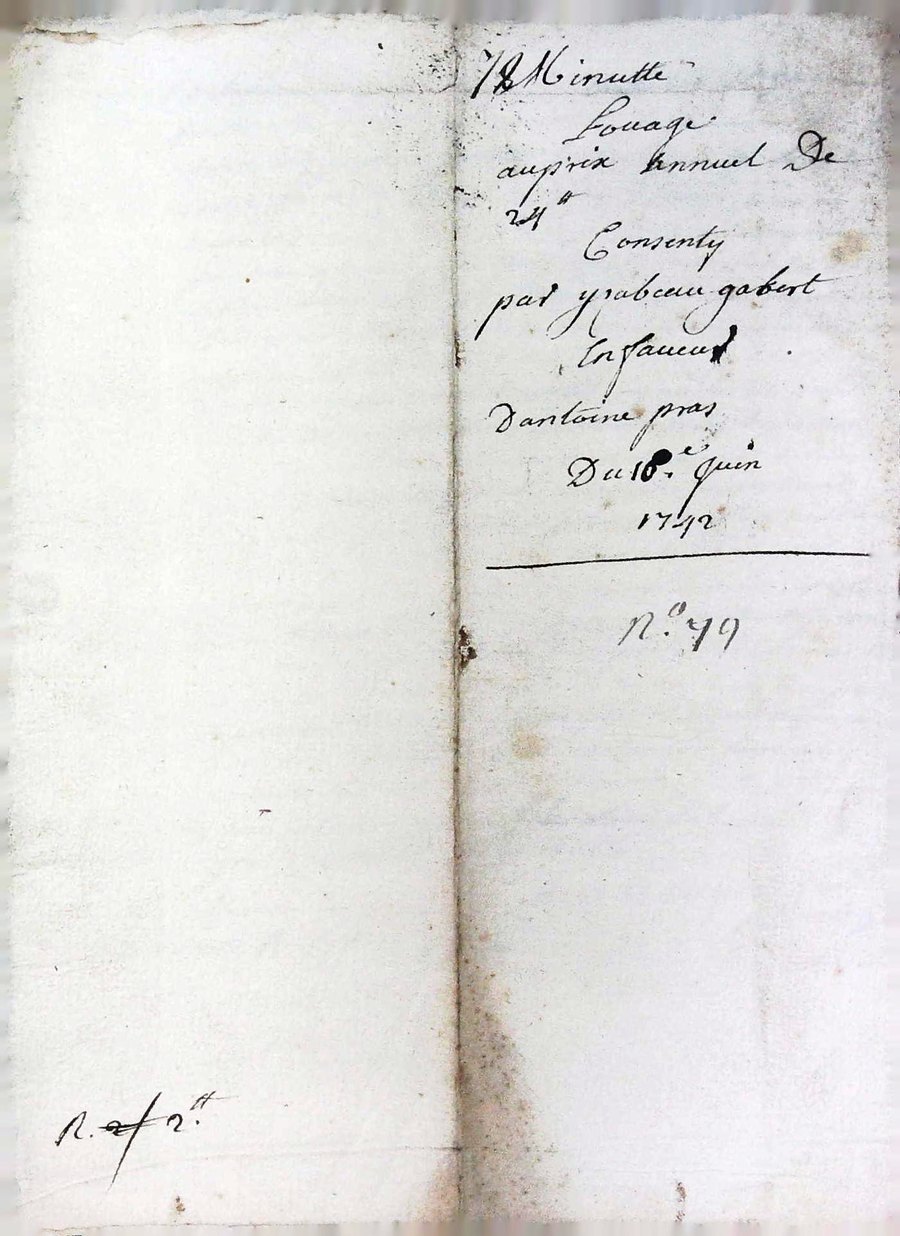 78 Minutte
Louage
auprix Annuel De
24 ₶
Consenty
par ysabeau gabert
En faueur
Dantoine pras
Du 18.e Juin
1742
N.o 79
R. 2 2.₶